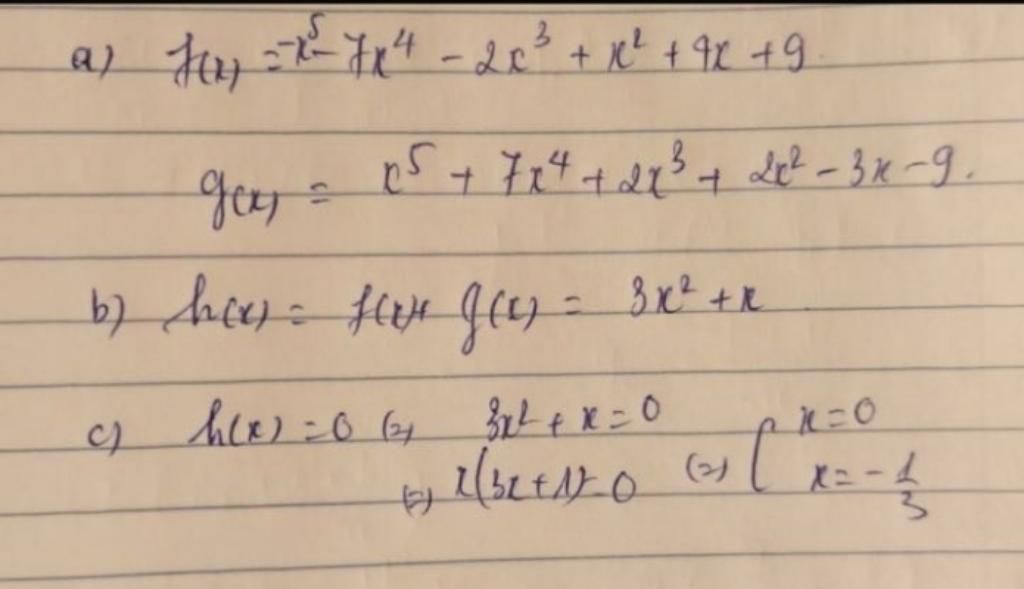 a) f(x) = -x⁵ - 7x⁴ - 2x³ + x² + 4x + 9
g(x) = x⁵ + 7x⁴ + 2x³ + 2x² - 3x - 9.
b) h(x) = f(x)+ g(x) = 3x² + x
c) h(x) = 0 (=) 3x² + x = 0
(=) x(3x+1)=0 (=) [ x = 0
x = -1/3